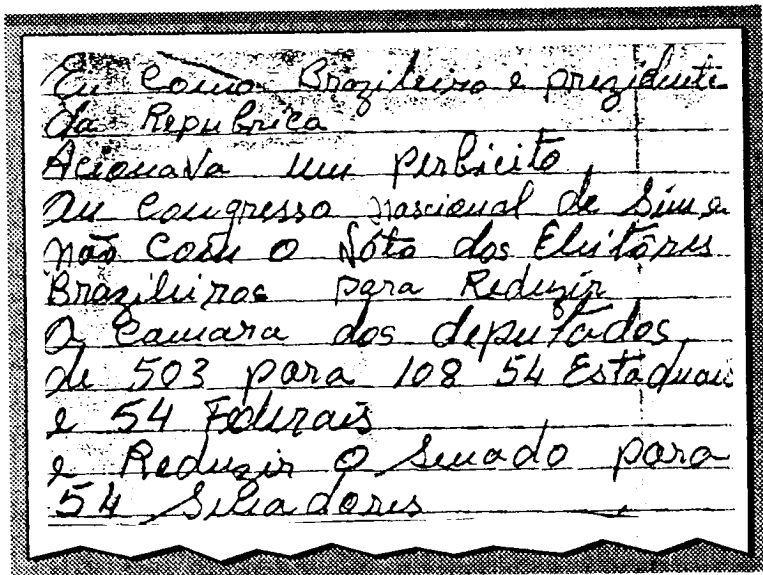 Eu como Brazileiro e prezidente
da Republica
Acionava um perbicito
au congresso nascional de Sim e
não com o Voto dos Eleitores
Brazileiros para Reduzir
a Camara dos deputados
de 503 para 108 54 Estaduais
e 54 Federais
e Reduzir o Senado para
54 Senadores